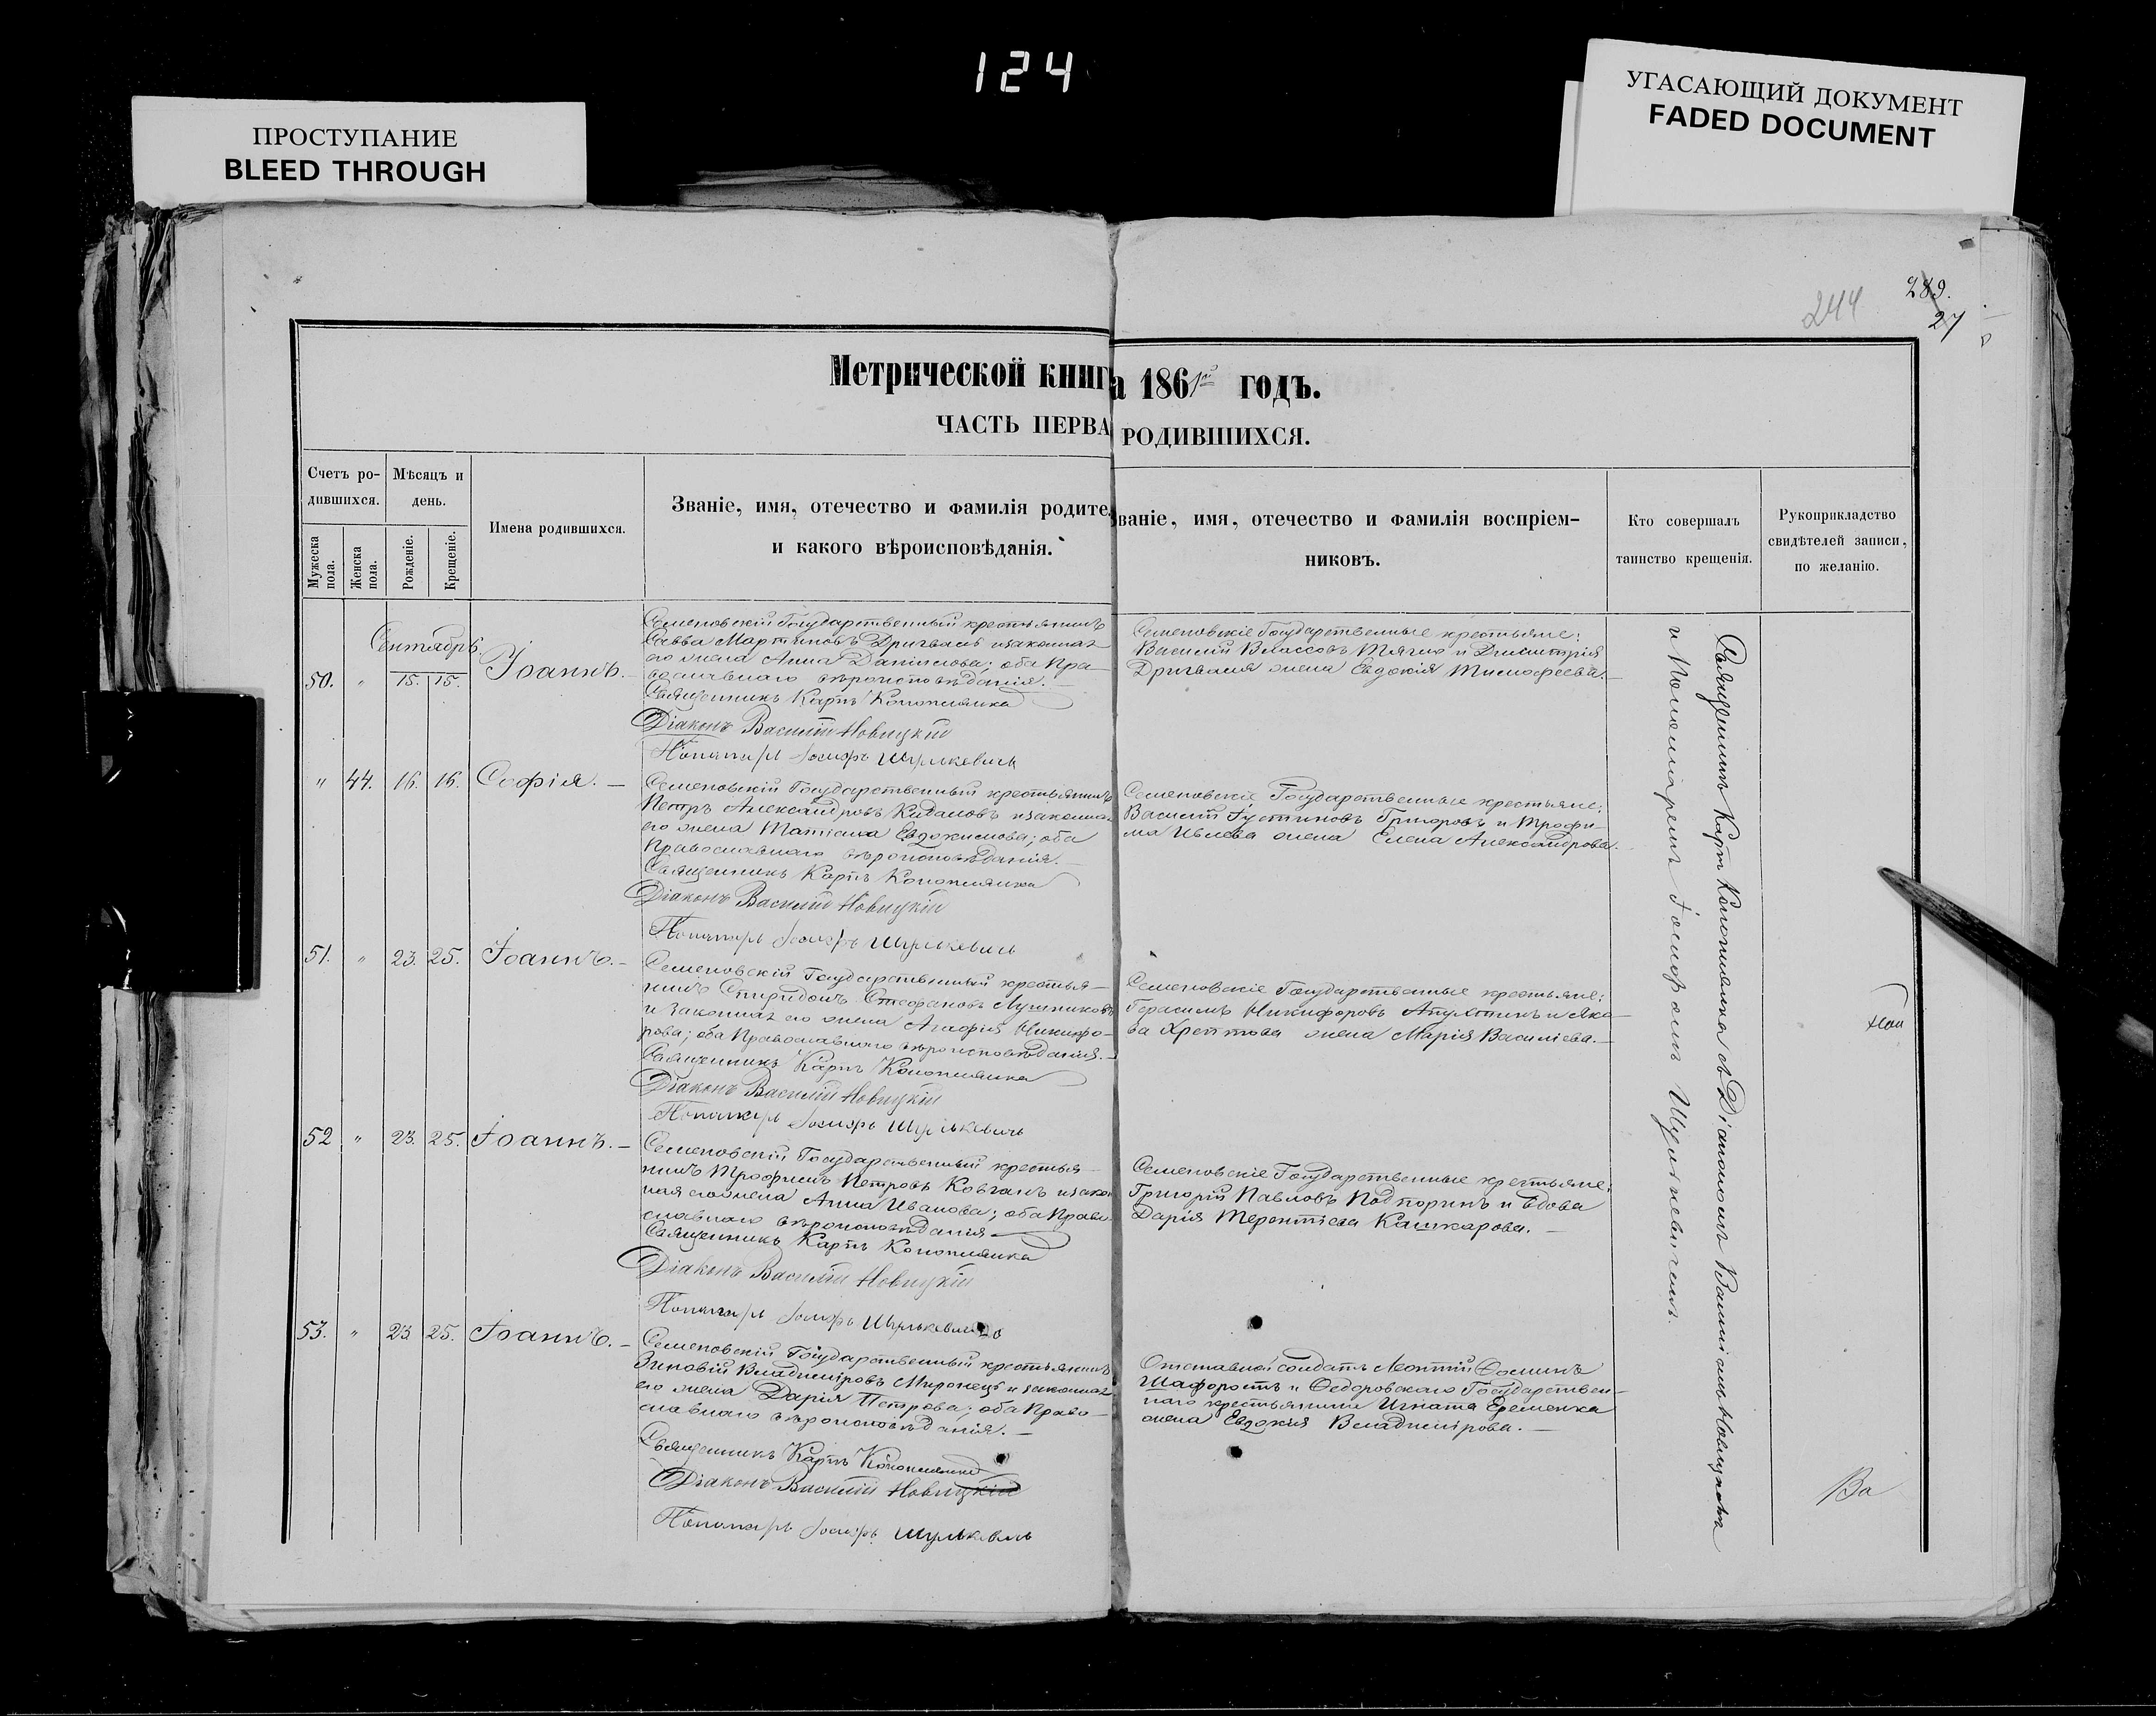 124
ПРОСТУПАНИЕ
BLEED THROUGH
УГАСАЮЩИЙ ДОКУМЕНТ
FADED DOCUMENT
244
289.
27
Метрической книг
а 1861й годъ.
ЧАСТЬ ПЕРВА
РОДИВШИХСЯ.
Счетъ ро-
дившихся.
Мужеска пола.
Женска пола.
Мѣсяцъ и
день.
Рожденіе.
Крещеніе.
Имена родившихся.
Званіе, имя, отечество и фамилія родите
и какого вѣроисповѣданія.
ваніе, имя, отечество и фамилія воспріем-
никовъ.
Кто совершалъ
таинство крещенія.
Рукоприкладство
свидѣтелей записи,
по желанію.
Сентябрь.
50. " 15. 15. Іоаннъ. –
Семеновскій Государственный крестьянинъ
Савва Мартиновъ Дригваль и законная
его жена Анна Данилова; оба Пра-
вославнаго вѣроисповѣданія. –
Священникъ Карпъ Конопляика
Діаконъ Василій Новицкій
Понамарь Іосифъ Шулькевичь
Семеновскіе Государственные крестьяне:
Василій Власовъ Тягно и Димитрія
Дригваля жена Евдокія Тимофеева. –
" 44. 16. 16. Софія. –
Семеновскій Государственный крестьянинъ
Петръ Александровъ Кидаловъ и законная
его жена Татіана Евдокимова; оба
Православнаго вѣроисповѣданія. –
Священникъ Карпъ Конопляика
Діаконъ Василій Новицкій
Понамарь Іосифъ Шулькевичь
Семеновскіе Государственные крестьяне:
Василій Густиновъ Григоровъ и Трофи-
ма Ивлева жена Елена Александрова. –
51. " 23. 25. Іоаннъ. –
Семеновскій Государственный крестья-
нинъ Спиридонъ Стефановъ Лушниковъ
и законная его жена Агафія Никифо-
рова; оба Православнаго вѣроисповѣданія. –
Священникъ Карпъ Конопляика
Діаконъ Василій Новицкій
Понамарь Іосифъ Шулькевичь
Семеновскіе Государственные крестьяне:
Герасимъ Никифоровъ и Яко-
ва жена Марія Василіева. –
52 " 23. 25. Іоаннъ. –
Семеновскій Государственный крестья-
нинъ Трофимъ Петровъ Ковганъ и закон
ная его жена Анна Иванова; оба Право
славнаго вѣроисповѣданія –
Священникъ Карпъ Конопляика
Діаконъ Василій Новицкій
Понамарь Іосифъ Шулькевичь
Семеновскіе Государственные крестьяне:
Григорій Павловъ Подпоринъ и вдова
Дарія Терентіева Кашкарова. –
53. " 23 25. Іоаннъ. –
Семеновскій Государственный крестьянинъ
Зиновій Владиміровъ Миронецъ и законная
его жена Дарія Петрова; оба Право-
славнаго вѣроисповѣданія. –
Священникъ Карпъ Конопляика
Діаконъ Василій Новицкій
Понамарь Іосифъ Шулькевичь
Отставной солдатъ Леонтій Фоминъ
Шафоростъ и Федоровскаго Государствен-
наго крестьянина Игната Еременка
жена Евдокія Владимірова. –
Священникъ Карпъ Конопляика съ Діакономъ Василіемъ Новицкимъ
и Понамаремъ Іосифомъ Шулькевичемъ.
Ва